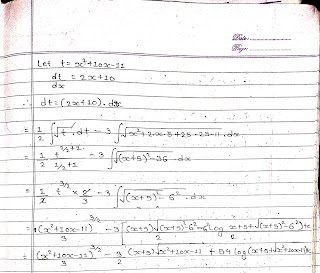 Date
Page
Let t = x²+10x-11
dt/dx = 2x+10
∴ dt = (2x+10).dx
= 1/2 ∫√t . dt - 3 ∫√x²+2.x.5+25-25-11 . dx
= 1/2 t^(1/2+1)/(1/2+1) - 3 ∫√(x+5)²-36 . dx
= 1/2 t^(3/2) × 2/3 - 3 ∫√(x+5)²-6² . dx
= (x²+10x-11)^(3/2)/3 - 3 [(x+5)√(x+5)²-6²/2 - 6² log x+5+√(x+5)²-6²)+c
= (x²+10x-11)^(3/2)/3 - 3/2 (x+5)√x²+10x-11 + 54 log(x+5+√x²+10x-11)+c